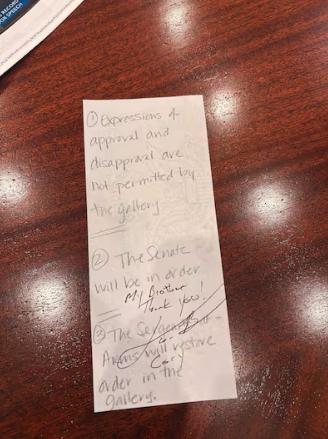 RECOR
FOR SPEECH
① Expressions of
approval and
disapproval are
not permitted by
the gallery
② The Senate
will be in order
My Brother
Thank you!
③ The Sergeant-at-
Arms will restore
Cory
order in the
gallery.